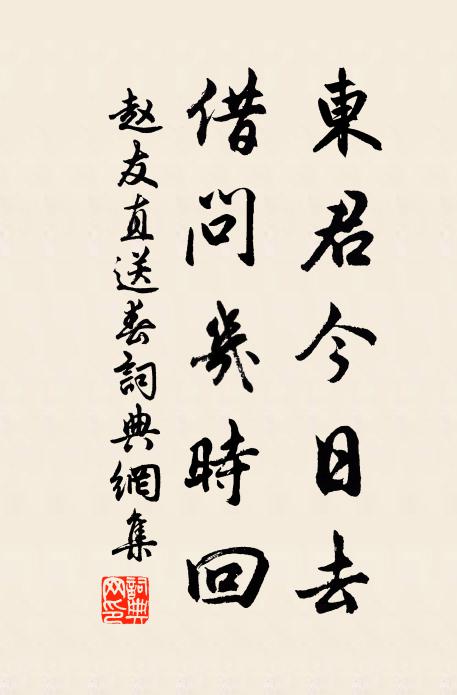 東君今日去
借問幾時回
赵友直送春詞典網集
詞典
网印